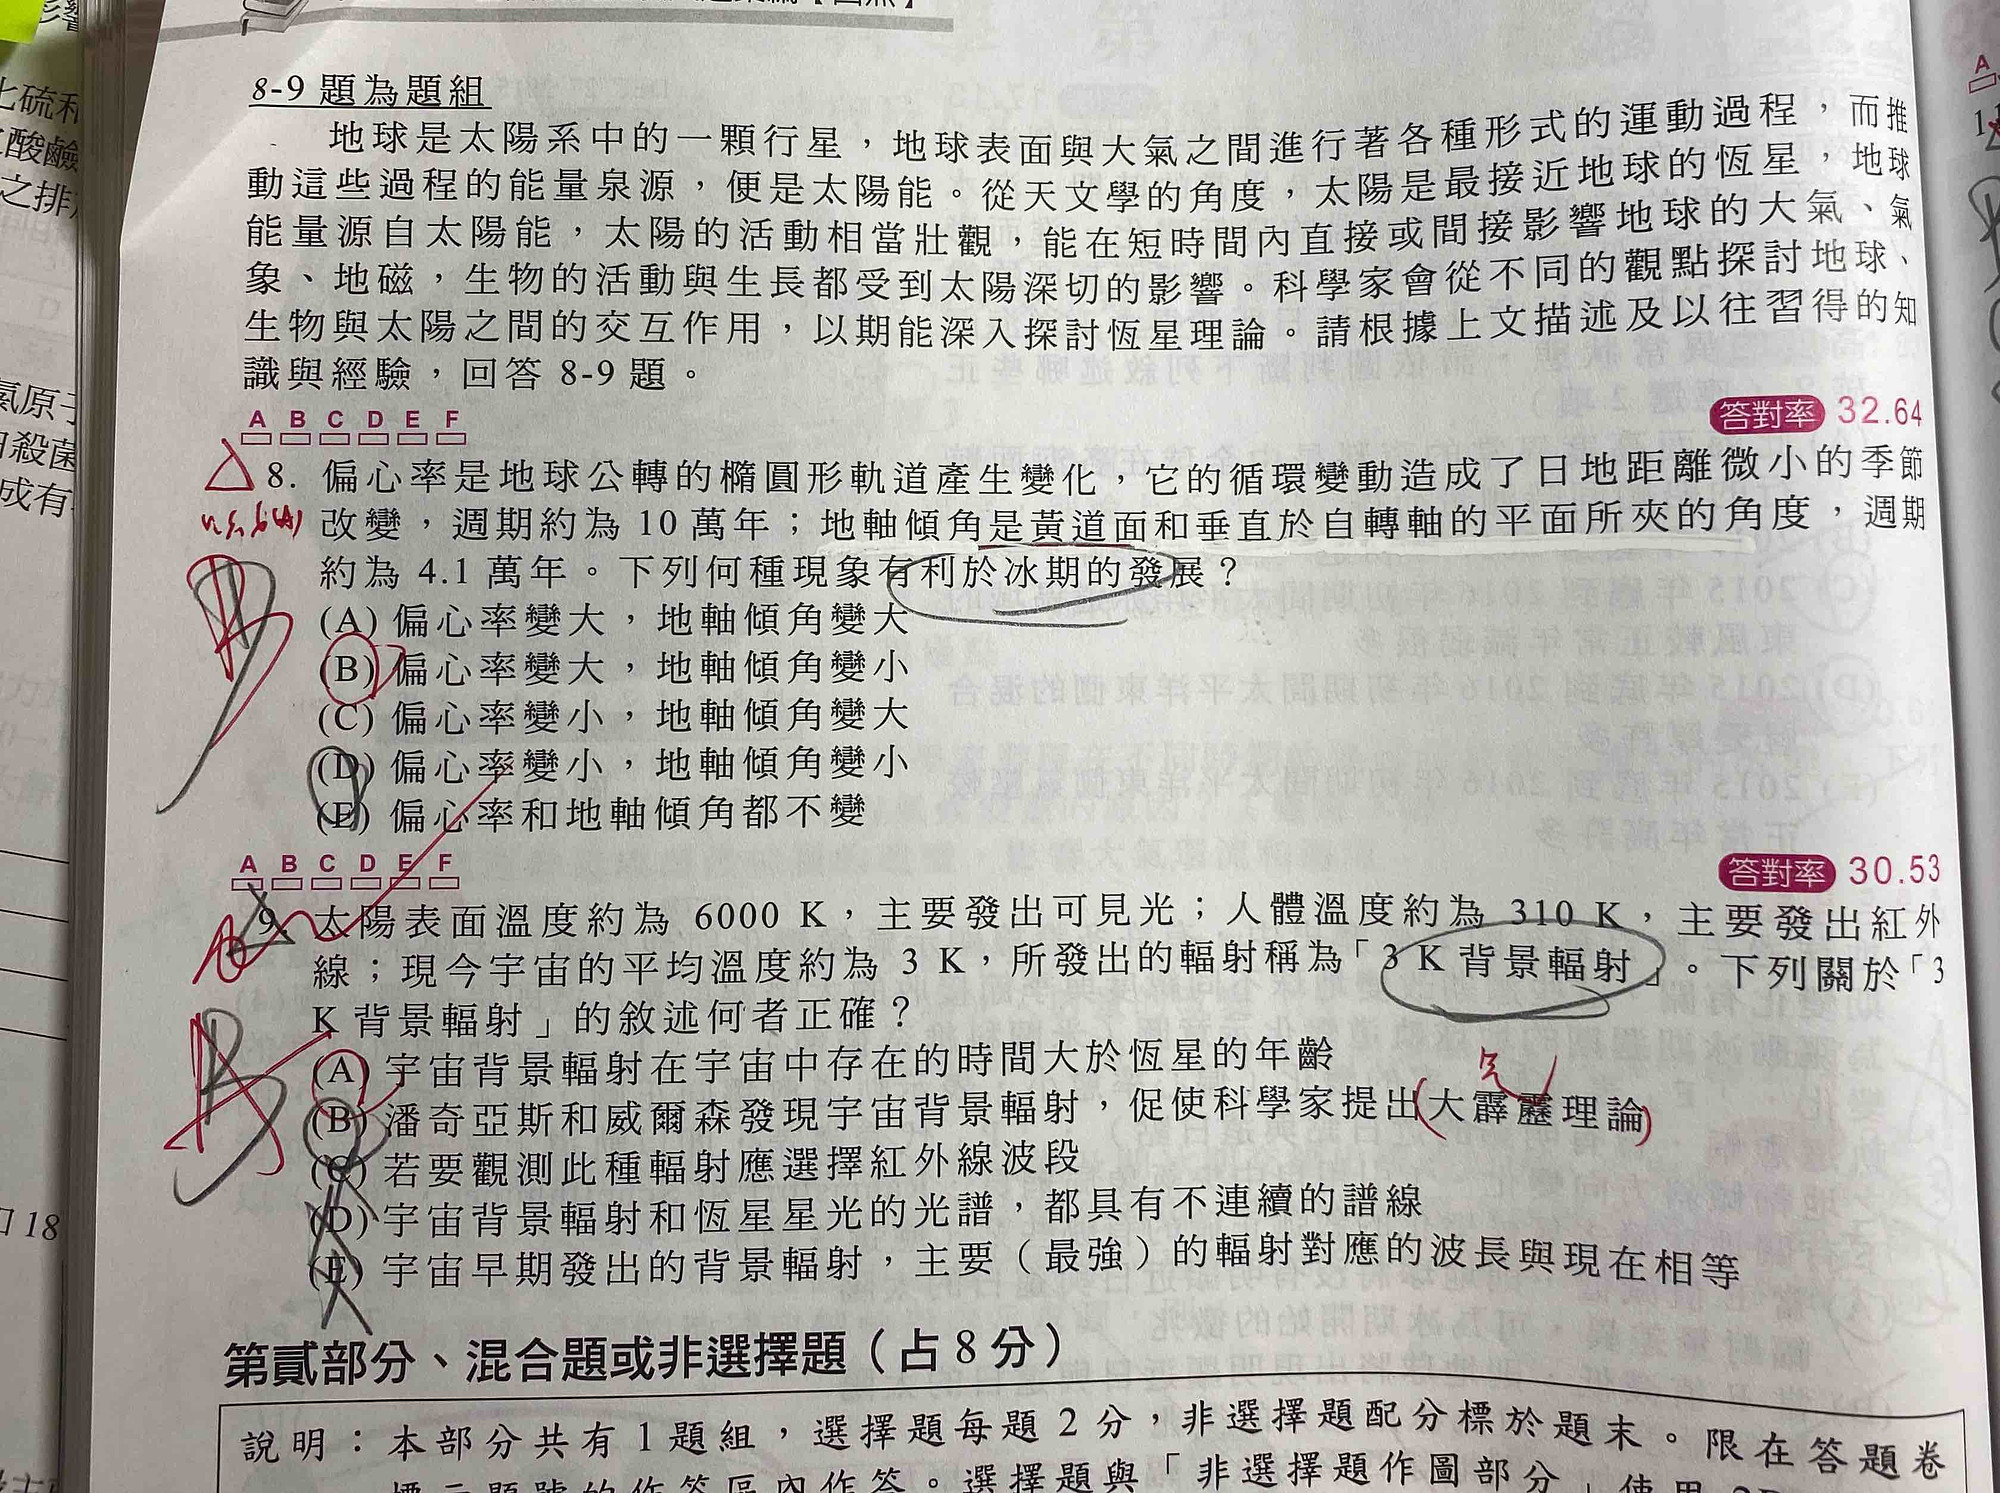 8-9 題為題組
地球是太陽系中的一顆行星，地球表面與大氣之間進行著各種形式的運動過程，而推
動這些過程的能量泉源，便是太陽能。從天文學的角度，太陽是最接近地球的恆星，地球
能量源自太陽能，太陽的活動相當壯觀，能在短時間內直接或間接影響地球的大氣、氣
象、地磁，生物的活動與生長都受到太陽深切的影響。科學家會從不同的觀點探討地球、
生物與太陽之間的交互作用，以期能深入探討恆星理論。請根據上文描述及以往習得的知
識與經驗，回答 8-9 題。
A B C D E F
答對率 32.64
8. 偏心率是地球公轉的橢圓形軌道產生變化，它的循環變動造成了日地距離微小的季節
改變，週期約為 10 萬年；地軸傾角是黃道面和垂直於自轉軸的平面所夾的角度，週期
約為 4.1 萬年。下列何種現象有利於冰期的發展？
(A) 偏心率變大，地軸傾角變大
(B) 偏心率變大，地軸傾角變小
(C) 偏心率變小，地軸傾角變大
(D) 偏心率變小，地軸傾角變小
(E) 偏心率和地軸傾角都不變
A B C D E F
答對率 30.53
9. 太陽表面溫度約為 6000 K，主要發出可見光；人體溫度約為 310 K，主要發出紅外
線；現今宇宙的平均溫度約為 3 K，所發出的輻射稱為「3 K 背景輻射」。下列關於「3
K 背景輻射」的敘述何者正確？
(A) 宇宙背景輻射在宇宙中存在的時間大於恆星的年齡
(B) 潘奇亞斯和威爾森發現宇宙背景輻射，促使科學家提出大霹靂理論
(C) 若要觀測此種輻射應選擇紅外線波段
(D) 宇宙背景輻射和恆星星光的光譜，都具有不連續的譜線
(E) 宇宙早期發出的背景輻射，主要（最強）的輻射對應的波長與現在相等
第貳部分、混合題或非選擇題（占 8 分）
說明：本部分共有 1 題組，選擇題每題 2 分，非選擇題配分標於題末。限在答題卷